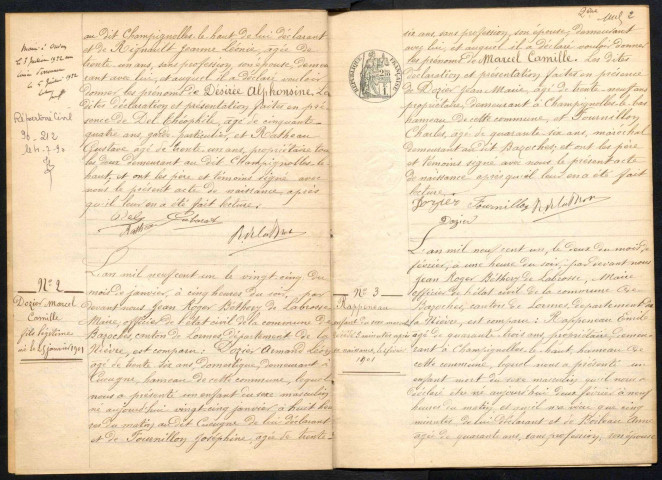 au dit Champignolles le haut de lui déclarant
et de Régnault Jeanne Léonie, âgée de
trente un ans, sans profession, son épouse, demeu
rant avec lui, et auquel il a déclaré vouloir
donner les prénoms de Désirée Alphonsine. Les
dites déclaration et présentation faites en pré
sence de Théophile, âgé de cinquante
quatre ans, garde particulier, et Rateau
Gustave âgé de trente ans, propriétaire tous
les deux demeurant au dit Champignolles le
haut, et ont les père et témoins signé avec
nous le présent acte de naissance, après
qu'il leur en a été fait lecture.
Répertoire Civil
90. 212
N° 2
Dozier Marcel
Camille
fils légitime
né le 25 janvier 1901
L'an mil neuf cent un le vingt cinq du
mois de janvier, à cinq heures du soir, par
devant nous Jean Roger Béthery de Labrosse
Maire, officier de l'état civil de la commune de
Bazoches, canton de Lormes, département de la
Nièvre, est comparu: Dozier Armand Léon
âgé de trente six ans, domestique, demeurant à
Cueugne, hameau de cette commune, lequel
nous a présenté un enfant du sexe masculin
né aujourd'hui vingt cinq janvier à huit heu
res du matin, au dit Cueugne de lui déclarant
et de Fournillon Joséphine, âgée de trente
2ème
six ans, sans profession, son épouse, demeurant
avec lui, et auquel il a déclaré vouloir donner
les prénoms de Marcel Camille. Les dites
déclaration et présentation faites en présence
de Dozier Jean Marie, âgé de trente neuf ans
propriétaire, demeurant à Champignolles le bas
hameau de cette commune, et Fournillon
Charles, âgé de quarante six ans, maréchal
demeurant au dit Bazoches, et ont les père
et témoins signé avec nous le présent acte
de naissance après qu'il leur en a été fait
lecture.
Dozier Fournillon
Dozier
N° 3
Rappeneau
L'an mil neuf cent un, le deux du mois de
février, à une heure du soir, par devant nous
Jean Roger Béthery de Labrosse, Maire
officier de l'état civil de la commune de
Bazoches, canton de Lormes, département de
la Nièvre, est comparu: Rappeneau Emile
âgé de quarante trois ans, propriétaire, demeu
rant à Champignolles le haut, hameau de
cette commune, lequel nous a présenté un
enfant mort du sexe masculin qu'il nous a
déclaré être né aujourd'hui deux février à neuf
heures du matin, et n'avoir vécu que cinq
minutes de lui déclarant et de
âgée de quarante ans, sans profession, son épouse